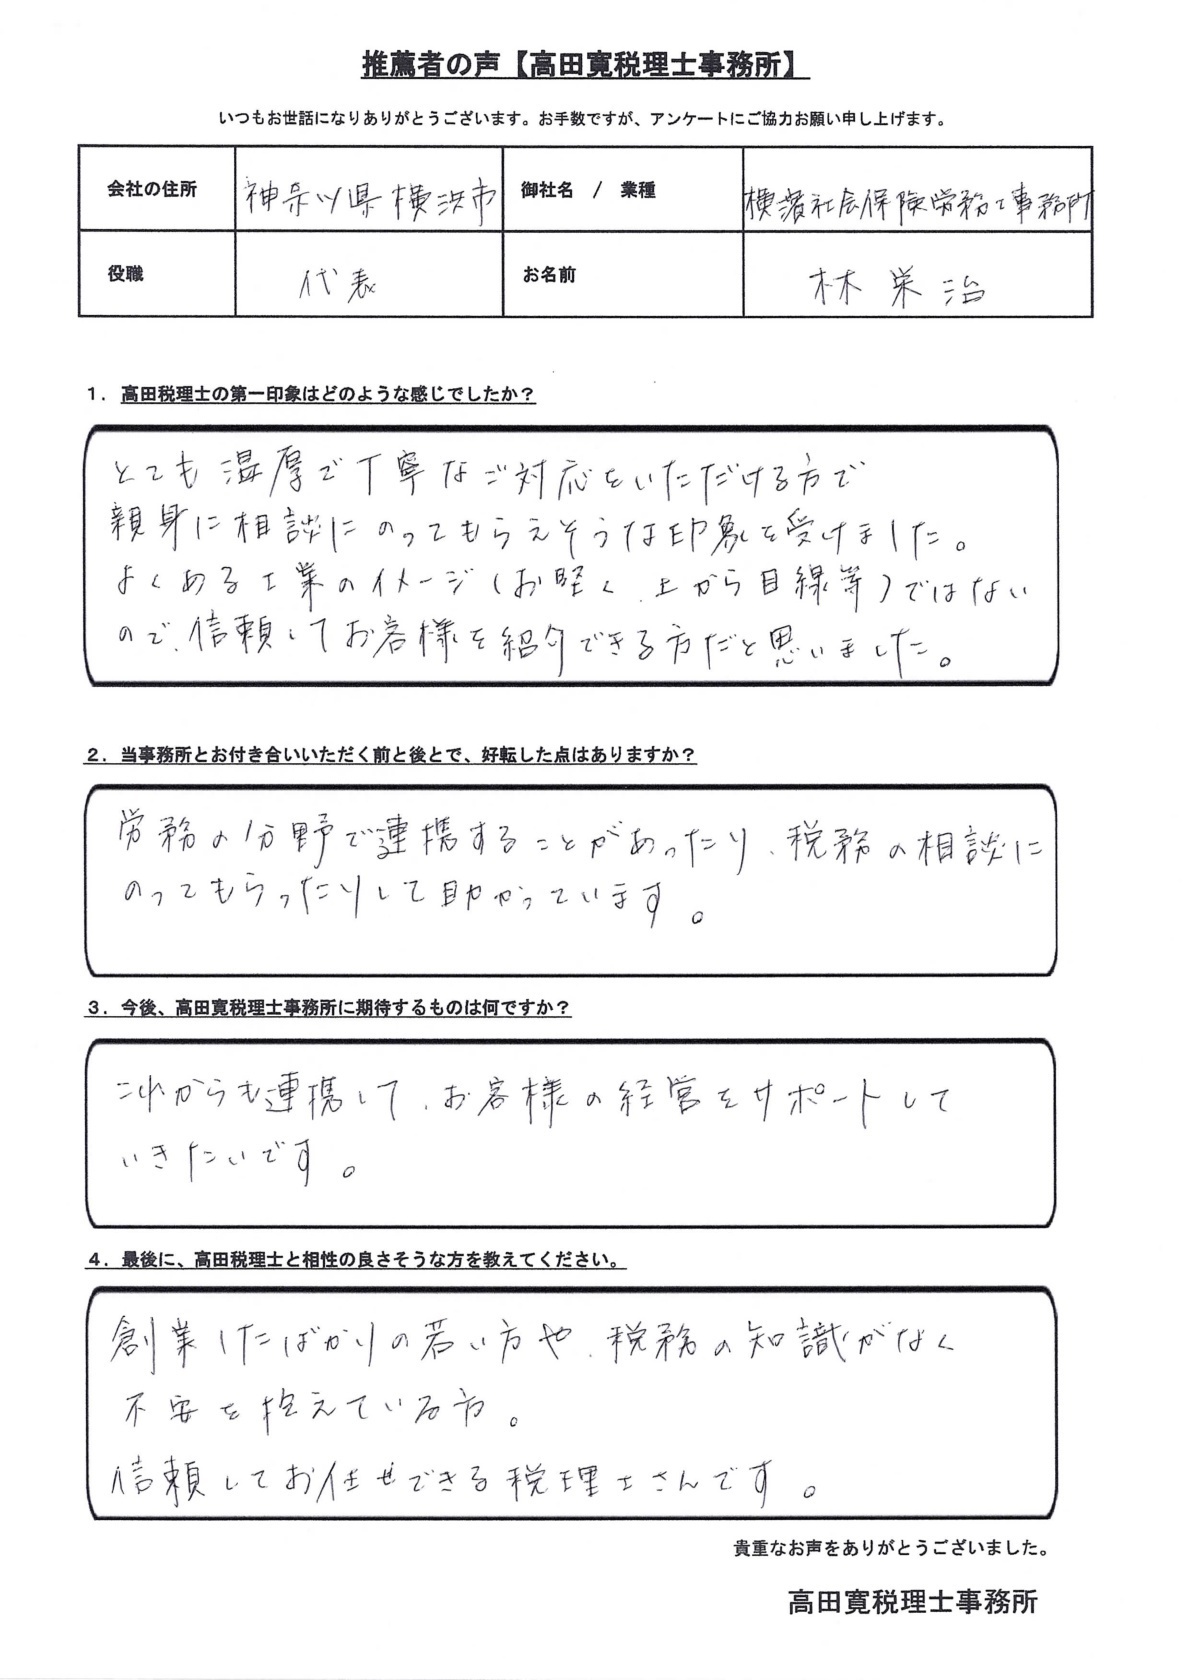 推薦者の声【高田寛税理士事務所】
いつもお世話になりありがとうございます。お手数ですが、アンケートにご協力お願い申し上げます。
会社の住所 神奈川県横浜市 御社名 / 業種 横濱社会保険労務士事務所
役職 代表 お名前 林栄治
1．高田税理士の第一印象はどのような感じでしたか？
とても温厚で丁寧なご対応をいただける方で
親身に相談にのってもらえそうな印象を受けました。
よくある士業のイメージ(お堅く、上から目線等)ではない
ので、信頼してお客様を紹介できる方だと思いました。
2．当事務所とお付き合いいただく前と後とで、好転した点はありますか？
労務の分野で連携することがあったり、税務の相談に
のってもらったりして助かっています。
3．今後、高田寛税理士事務所に期待するものは何ですか？
これからも連携して、お客様の経営をサポートして
いきたいです。
4．最後に、高田税理士と相性の良さそうな方を教えてください。
創業したばかりの若い方や、税務の知識がなく
不安を抱えている方。
信頼してお任せできる税理士さんです。
貴重なお声をありがとうございました。
高田寛税理士事務所